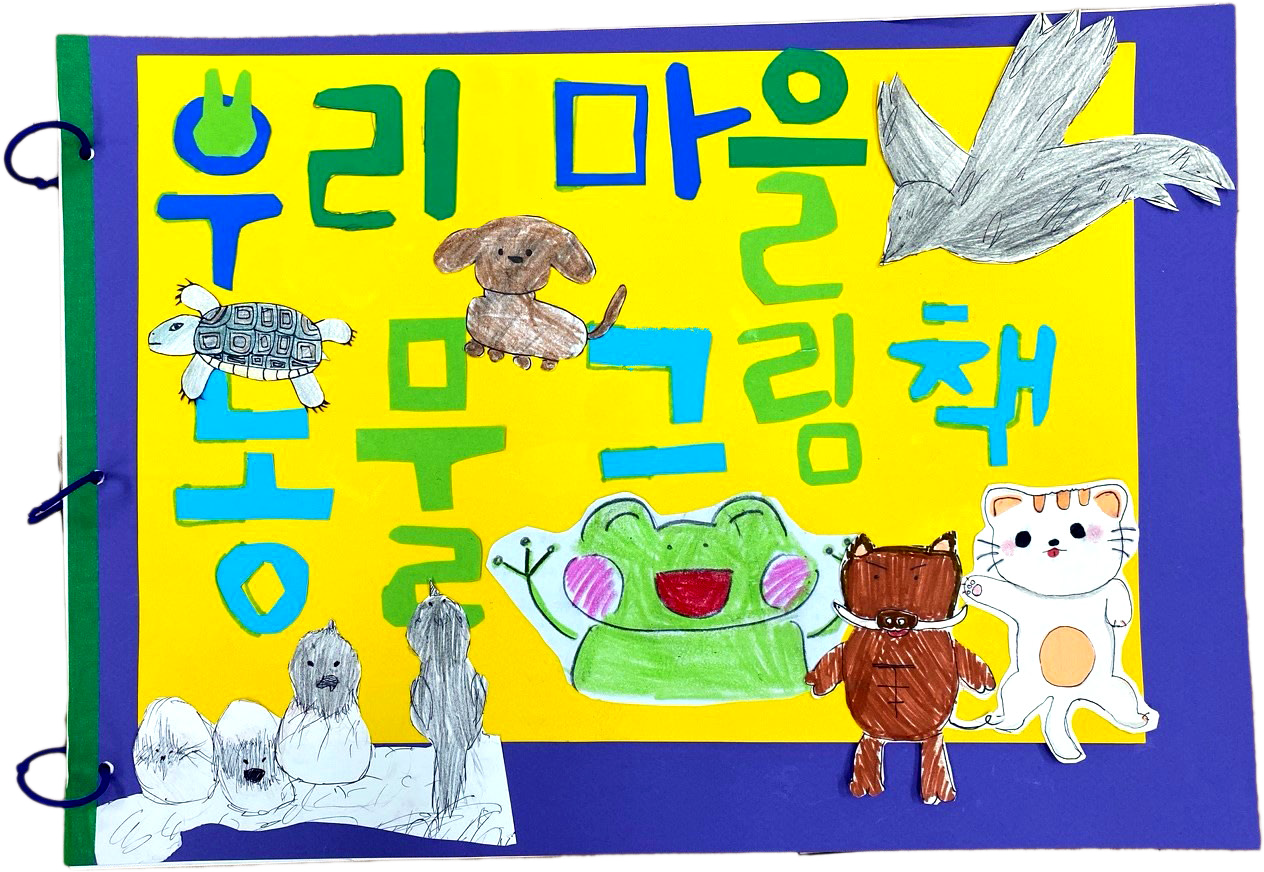 우리 마을
동물 그림책